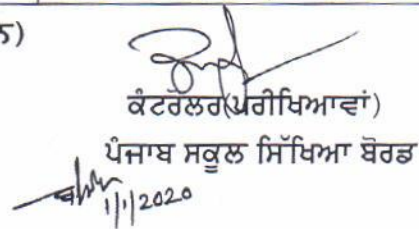 ਨ)
ਕੰਟਰੋਲਰ(ਪਰੀਖਿਆਵਾਂ)
ਪੰਜਾਬ ਸਕੂਲ ਸਿੱਖਿਆ ਬੋਰਡ
1/1/2020